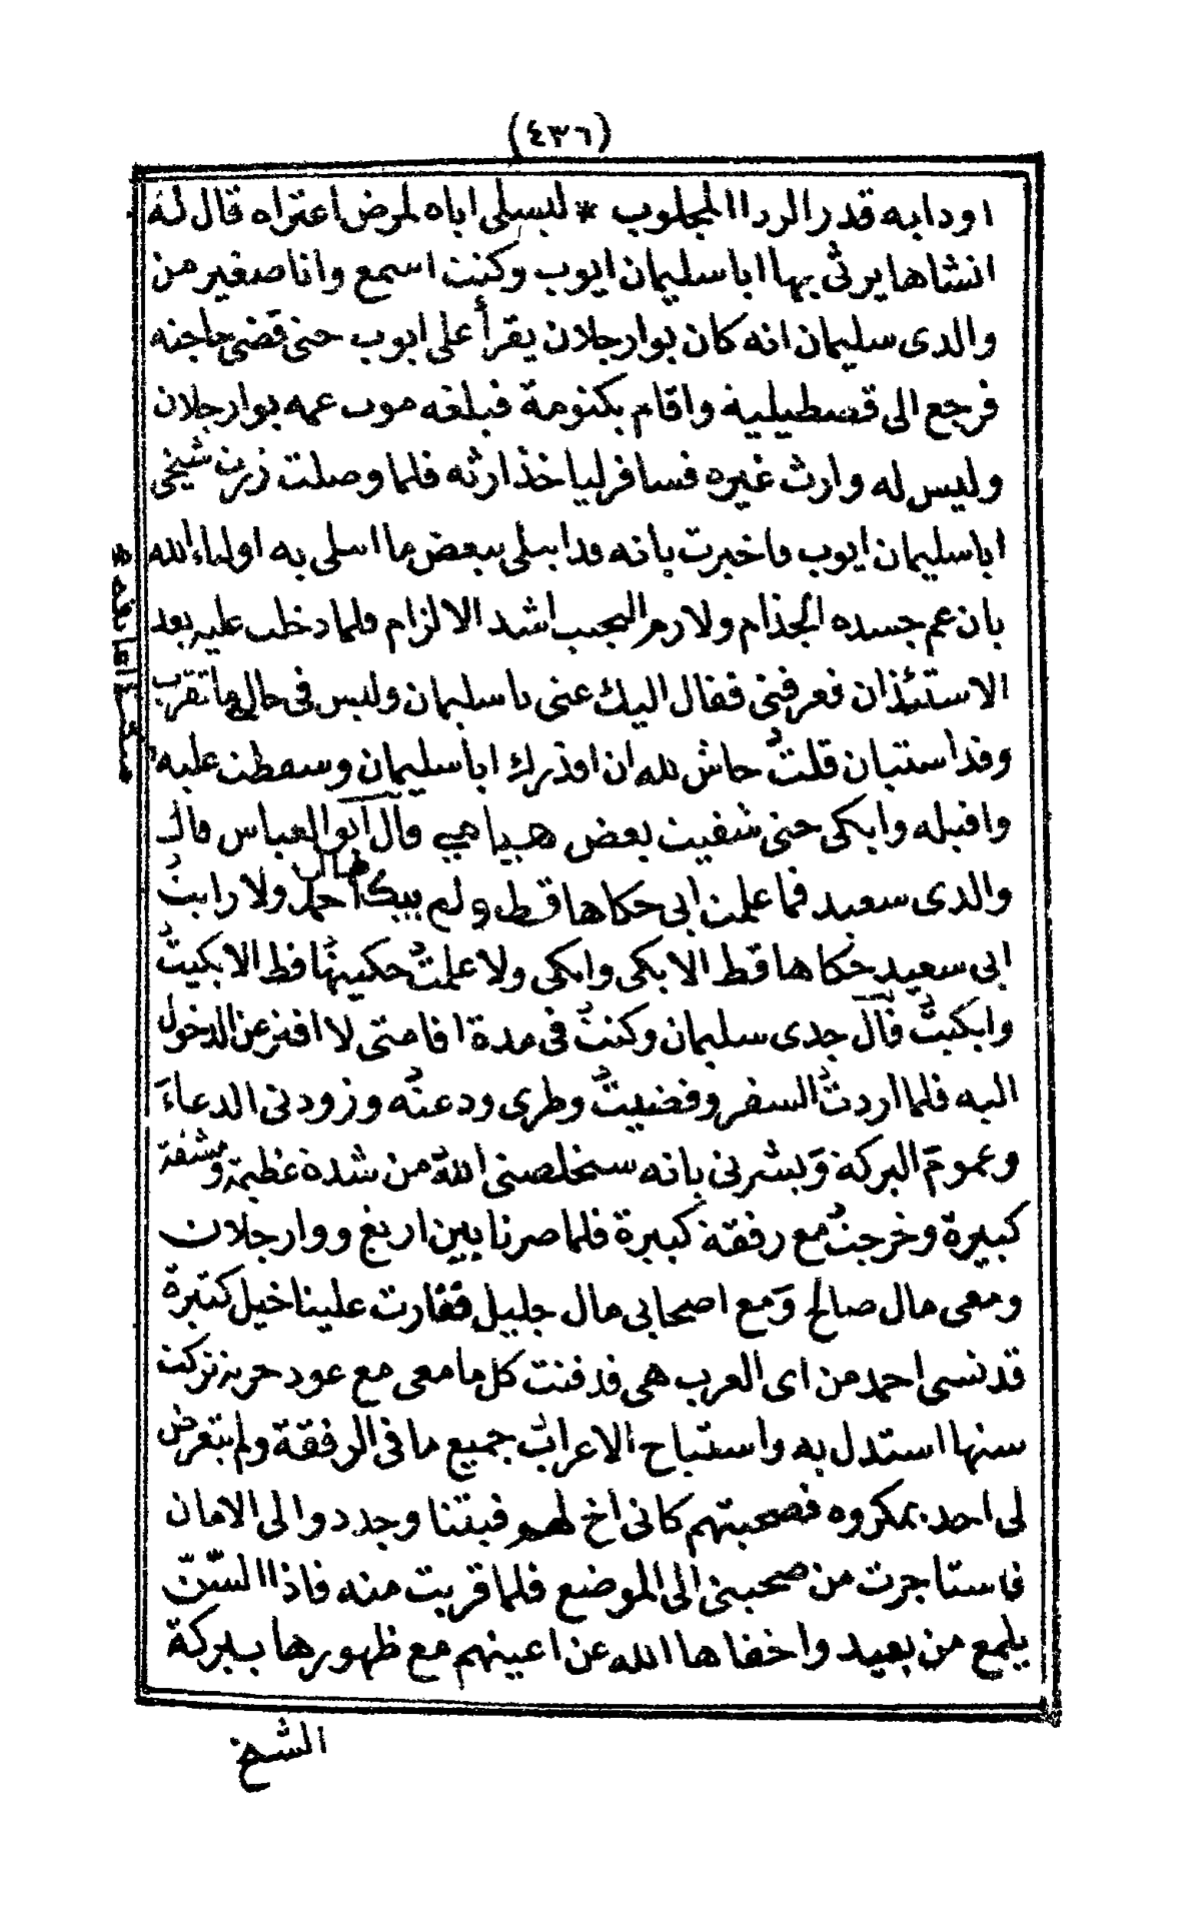 (٤٣٦)
اودابه قدر الردا المجلوب * ليسلى اباه لمرض اعتراه قال له
انشاها يرثى بها ابا سليمان ايوب وكنت اسمع وانا صغير من
والدى سليمان انه كان بوارجلان يقرأ على ايوب حتى قضى حاجته
فرجع الى قصطيلية واقام بكنومة فبلغه موت عمه بوارجلان
وليس له وارث غيره فسافر لياخذ ارثه فلما وصلت زرت شيخى
ابا سليمان ايوب فاخبرت بانه قد ابتلى ببعض ما ابتلى به اولياء الله
بان عم جسده الجذام ولازم البيت اشد الالزام فلما دخلت عليه بعد
الاستئذان فعرفنى فقال اليك عنى يا سليمان وليس فى حالى ما تقرب
وقد استبان قلت حاش لله ان اقذرك ابا سليمان وسقطت عليه
واقبله وابكى حتى شفيت بعض هيامى قال ابو العباس قال
والدى سعيد فما علمت ابى حكاها قط ولم يبك قال احمد ولا رايت
ابى سعيد حكاها قط الا بكى وابكى ولا علمت حكيتها قط الا بكيت
وابكيت قال جدى سليمان وكنت فى مدة اقامتى لا افتر عن الدخول
اليه فلما اردت السفر وقضيت وطرى ودعته وزودنى الدعاء
وعموم البركة وبشرنى بانه سيخلصنى الله من شدة عظيمة ومشقة
كبيرة وخرجت مع رفقة كبيرة فلما صرنا بين اريغ ووارجلان
ومعى مال صالح ومع اصحابى مال جليل فغارت علينا خيل كثيرة
قد نسى احمد من اى العرب هى فدفنت كل ما معى مع عود حربة تركت
سنها استدل به واستباح الاعراب جميع ما فى الرفقة ولم يتعرض
لى احد بمكروه فصحبتهم كانى اخ لهم فبتنا وجددوا لى الامان
فاستاجرت من صحبنى الى الموضع فلما قربت منه فاذا السن
يلمع من بعيد واخفاها الله عن اعينهم مع ظهورها ببركة
الشخ